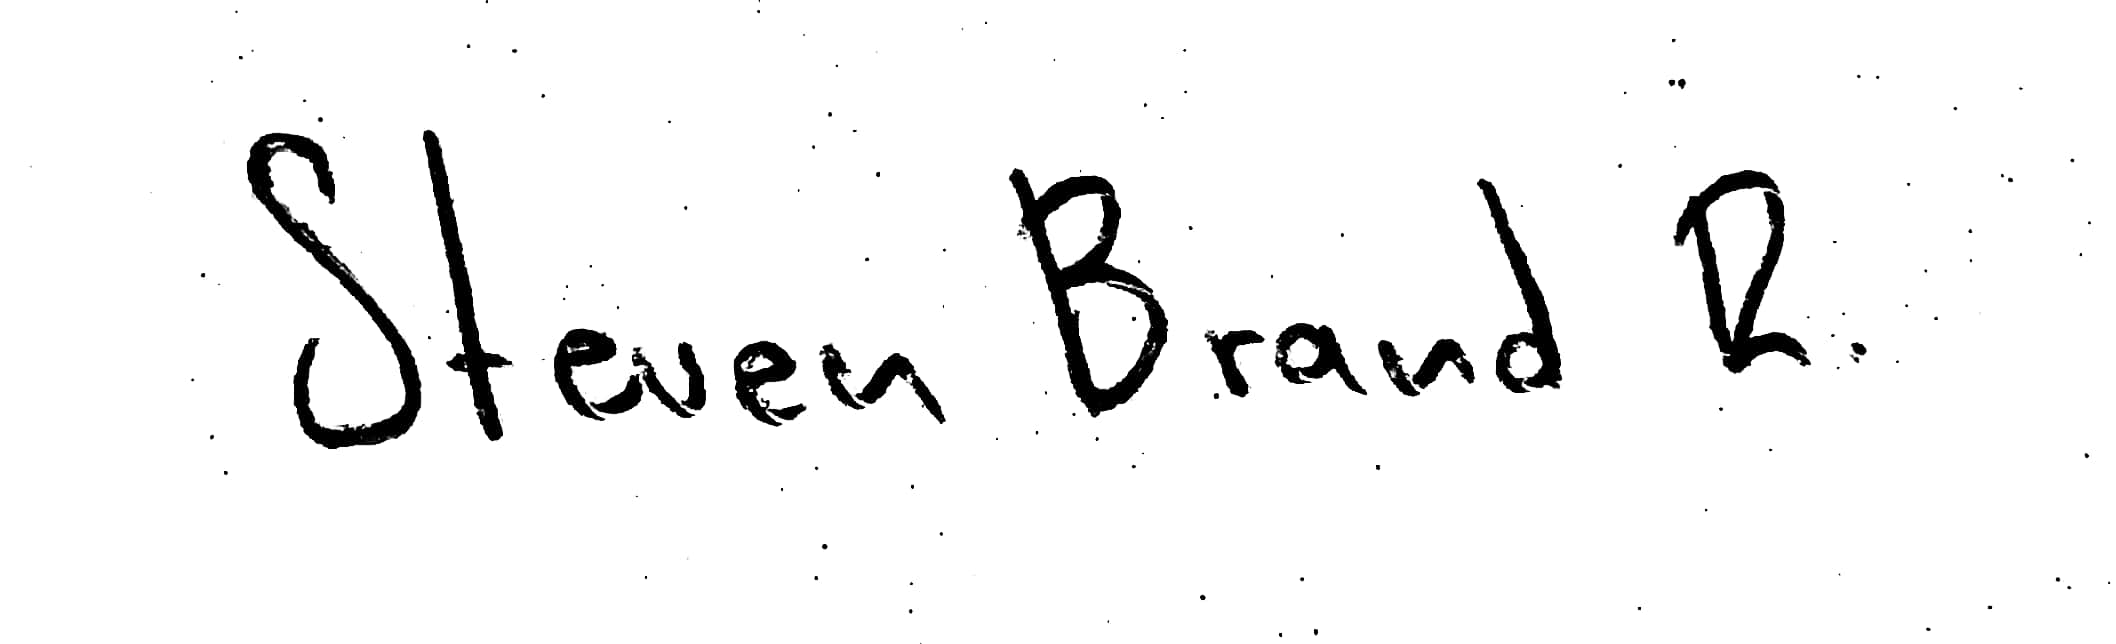 Steven Brand R.